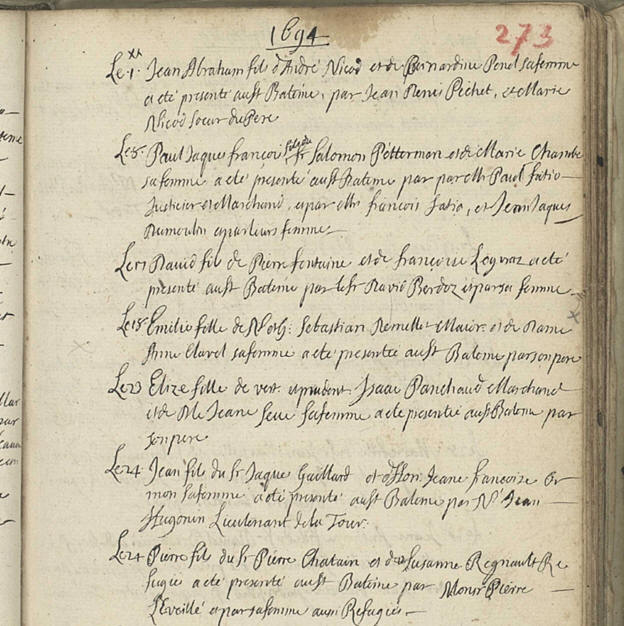 1694
273
Le 1 Jean Abraham fils d'André Nicod et de Bernardine Penel sa femme
a eté presenté au St Bateme, par Jean Pichet, et Marie
Nicod soeur du Pere
Le 8 Paul Jaques françois fils du Sr Salomon Petterman et de Marie
sa femme a eté presenté au St Bateme par par Mr Paul Fatio
Justicier et Marchand, et par Mr françois Fatio, et Jean Jaques
Dumoulin et par leurs femmes
Le David fils de Pierre fontaine et de françoise Leyvraz a eté
presenté au St Bateme par le Sr David Berdoz et par sa femme
Le 18 Emilie fille de Noble Sebastian Maior et de Dame
Anne Clavel sa femme a eté presentée au St Bateme par son pere
Le 23 Elize fille de vert. et prudent Isaac Panchaud Marchand
et de Dle Jeane sa femme a eté presentée au St Bateme par
son pere
Le 24 Jean fils du Sr Jaque Gaillard et d'Hon. Jeane françoise Or
mon sa femme a eté presenté au St Bateme par Jean
Hugonin Lieutenant de la Tour.
Le 24 Pierre fils du Sr Pierre Chatain et de Susanne Regnault Re
fugiés a eté presenté au St Bateme par Monsr Pierre
L'Eveillé et par sa femme aussi Refugiés